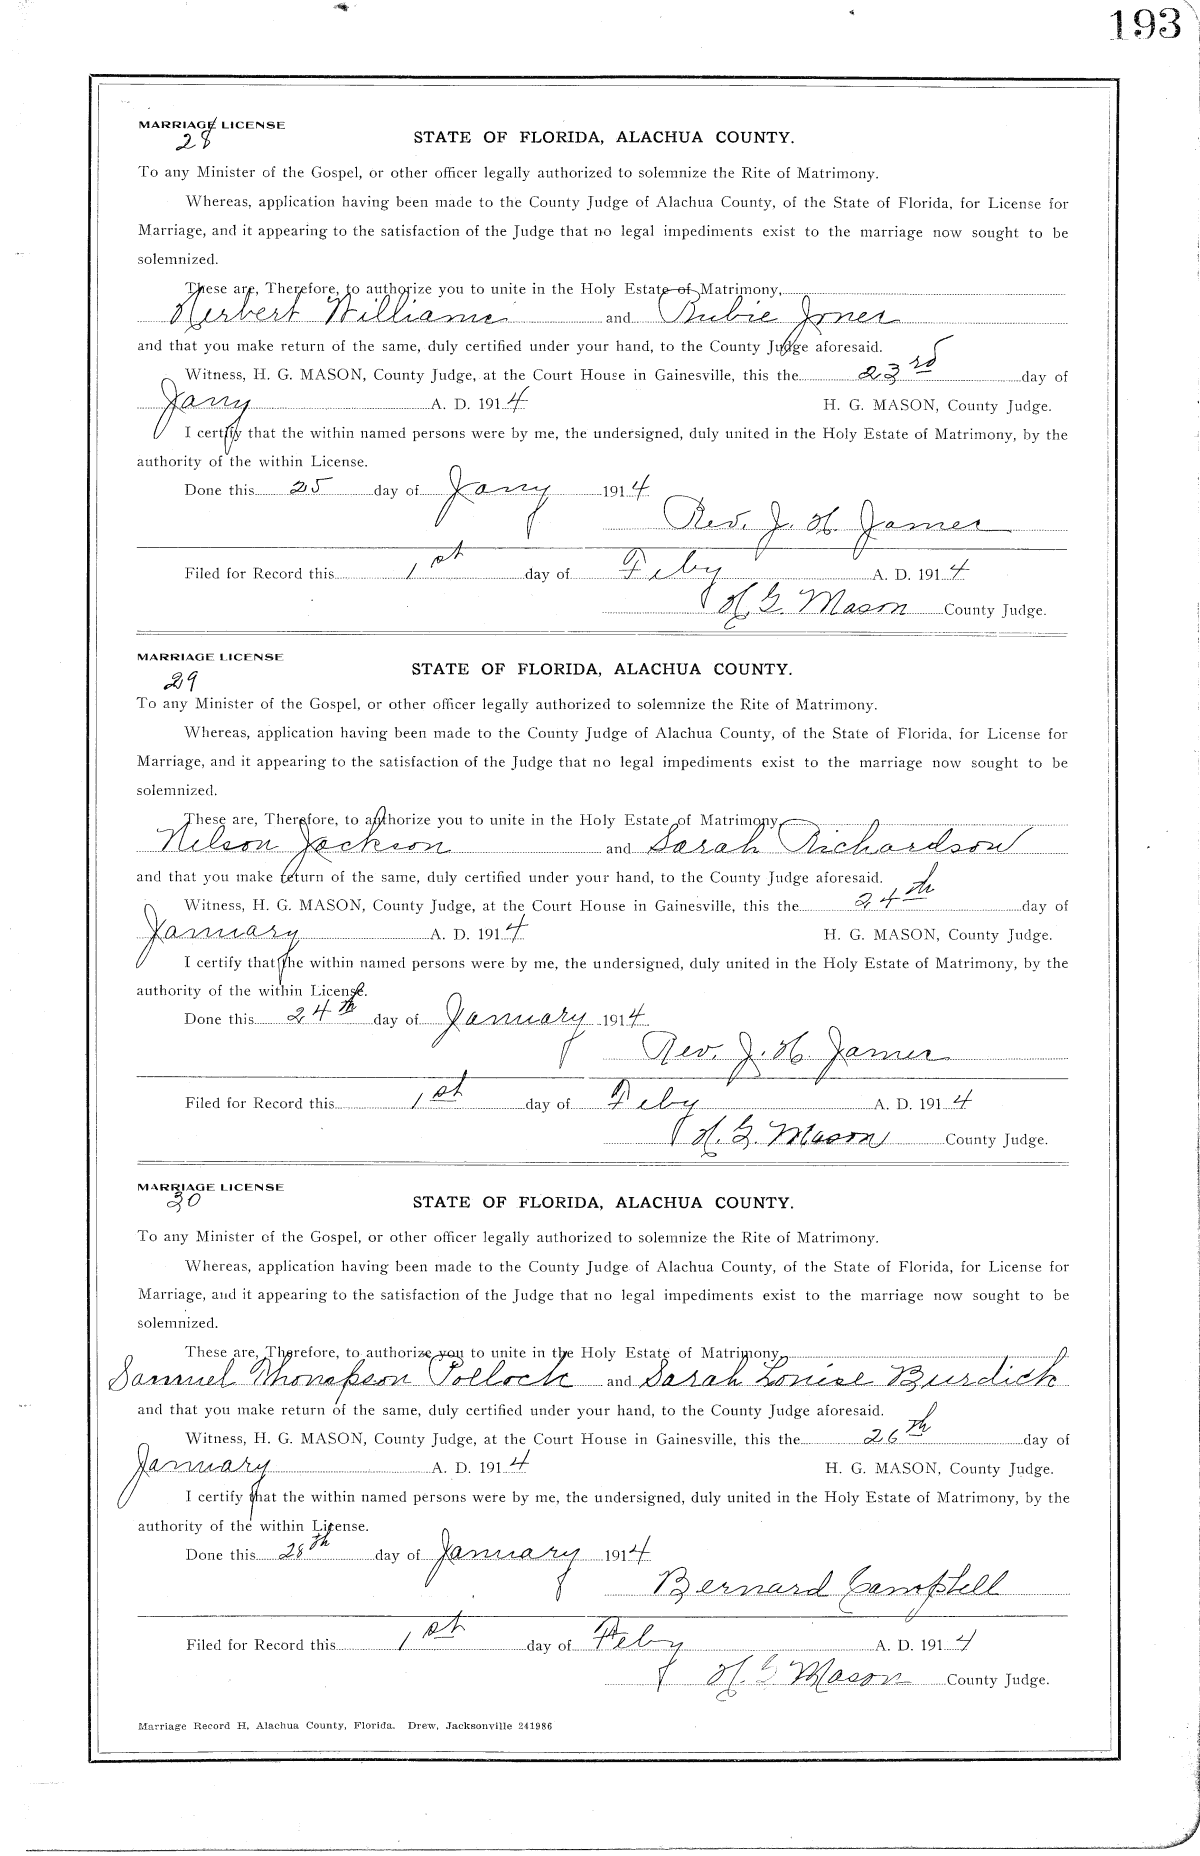 193
MARRIAGE LICENSE
28
STATE OF FLORIDA, ALACHUA COUNTY.
To any Minister of the Gospel, or other officer legally authorized to solemnize the Rite of Matrimony.
Whereas, application having been made to the County Judge of Alachua County, of the State of Florida, for License for
Marriage, and it appearing to the satisfaction of the Judge that no legal impediments exist to the marriage now sought to be
solemnized.
These are, Therefore, to authorize you to unite in the Holy Estate of Matrimony,
Herbert Williams and Rubie Jones
and that you make return of the same, duly certified under your hand, to the County Judge aforesaid.
Witness, H. G. MASON, County Judge, at the Court House in Gainesville, this the 23rd day of
Jany A. D. 1914 H. G. MASON, County Judge.
I certify that the within named persons were by me, the undersigned, duly united in the Holy Estate of Matrimony, by the
authority of the within License.
Done this 25 day of Jany 1914
Rev. J. H. James
Filed for Record this 1st day of Feby A. D. 1914
H. G. Mason County Judge.
MARRIAGE LICENSE
29
STATE OF FLORIDA, ALACHUA COUNTY.
To any Minister of the Gospel, or other officer legally authorized to solemnize the Rite of Matrimony.
Whereas, application having been made to the County Judge of Alachua County, of the State of Florida, for License for
Marriage, and it appearing to the satisfaction of the Judge that no legal impediments exist to the marriage now sought to be
solemnized.
These are, Therefore, to authorize you to unite in the Holy Estate of Matrimony,
Nelson Jackson and Sarah Richardson
and that you make return of the same, duly certified under your hand, to the County Judge aforesaid.
Witness, H. G. MASON, County Judge, at the Court House in Gainesville, this the 24th day of
January A. D. 1914 H. G. MASON, County Judge.
I certify that the within named persons were by me, the undersigned, duly united in the Holy Estate of Matrimony, by the
authority of the within License.
Done this 24th day of January 1914
Rev. J. H. James
Filed for Record this 1st day of Feby A. D. 1914
H. G. Mason County Judge.
MARRIAGE LICENSE
30
STATE OF FLORIDA, ALACHUA COUNTY.
To any Minister of the Gospel, or other officer legally authorized to solemnize the Rite of Matrimony.
Whereas, application having been made to the County Judge of Alachua County, of the State of Florida, for License for
Marriage, and it appearing to the satisfaction of the Judge that no legal impediments exist to the marriage now sought to be
solemnized.
These are, Therefore, to authorize you to unite in the Holy Estate of Matrimony,
Samuel Thompson Pollock and Sarah Louise Burdick
and that you make return of the same, duly certified under your hand, to the County Judge aforesaid.
Witness, H. G. MASON, County Judge, at the Court House in Gainesville, this the 26th day of
January A. D. 1914 H. G. MASON, County Judge.
I certify that the within named persons were by me, the undersigned, duly united in the Holy Estate of Matrimony, by the
authority of the within License.
Done this 28th day of January 1914
Bernard Campbell
Filed for Record this 1st day of Feby A. D. 1914
H. G. Mason County Judge.
Marriage Record H, Alachua County, Florida. Drew, Jacksonville 241986